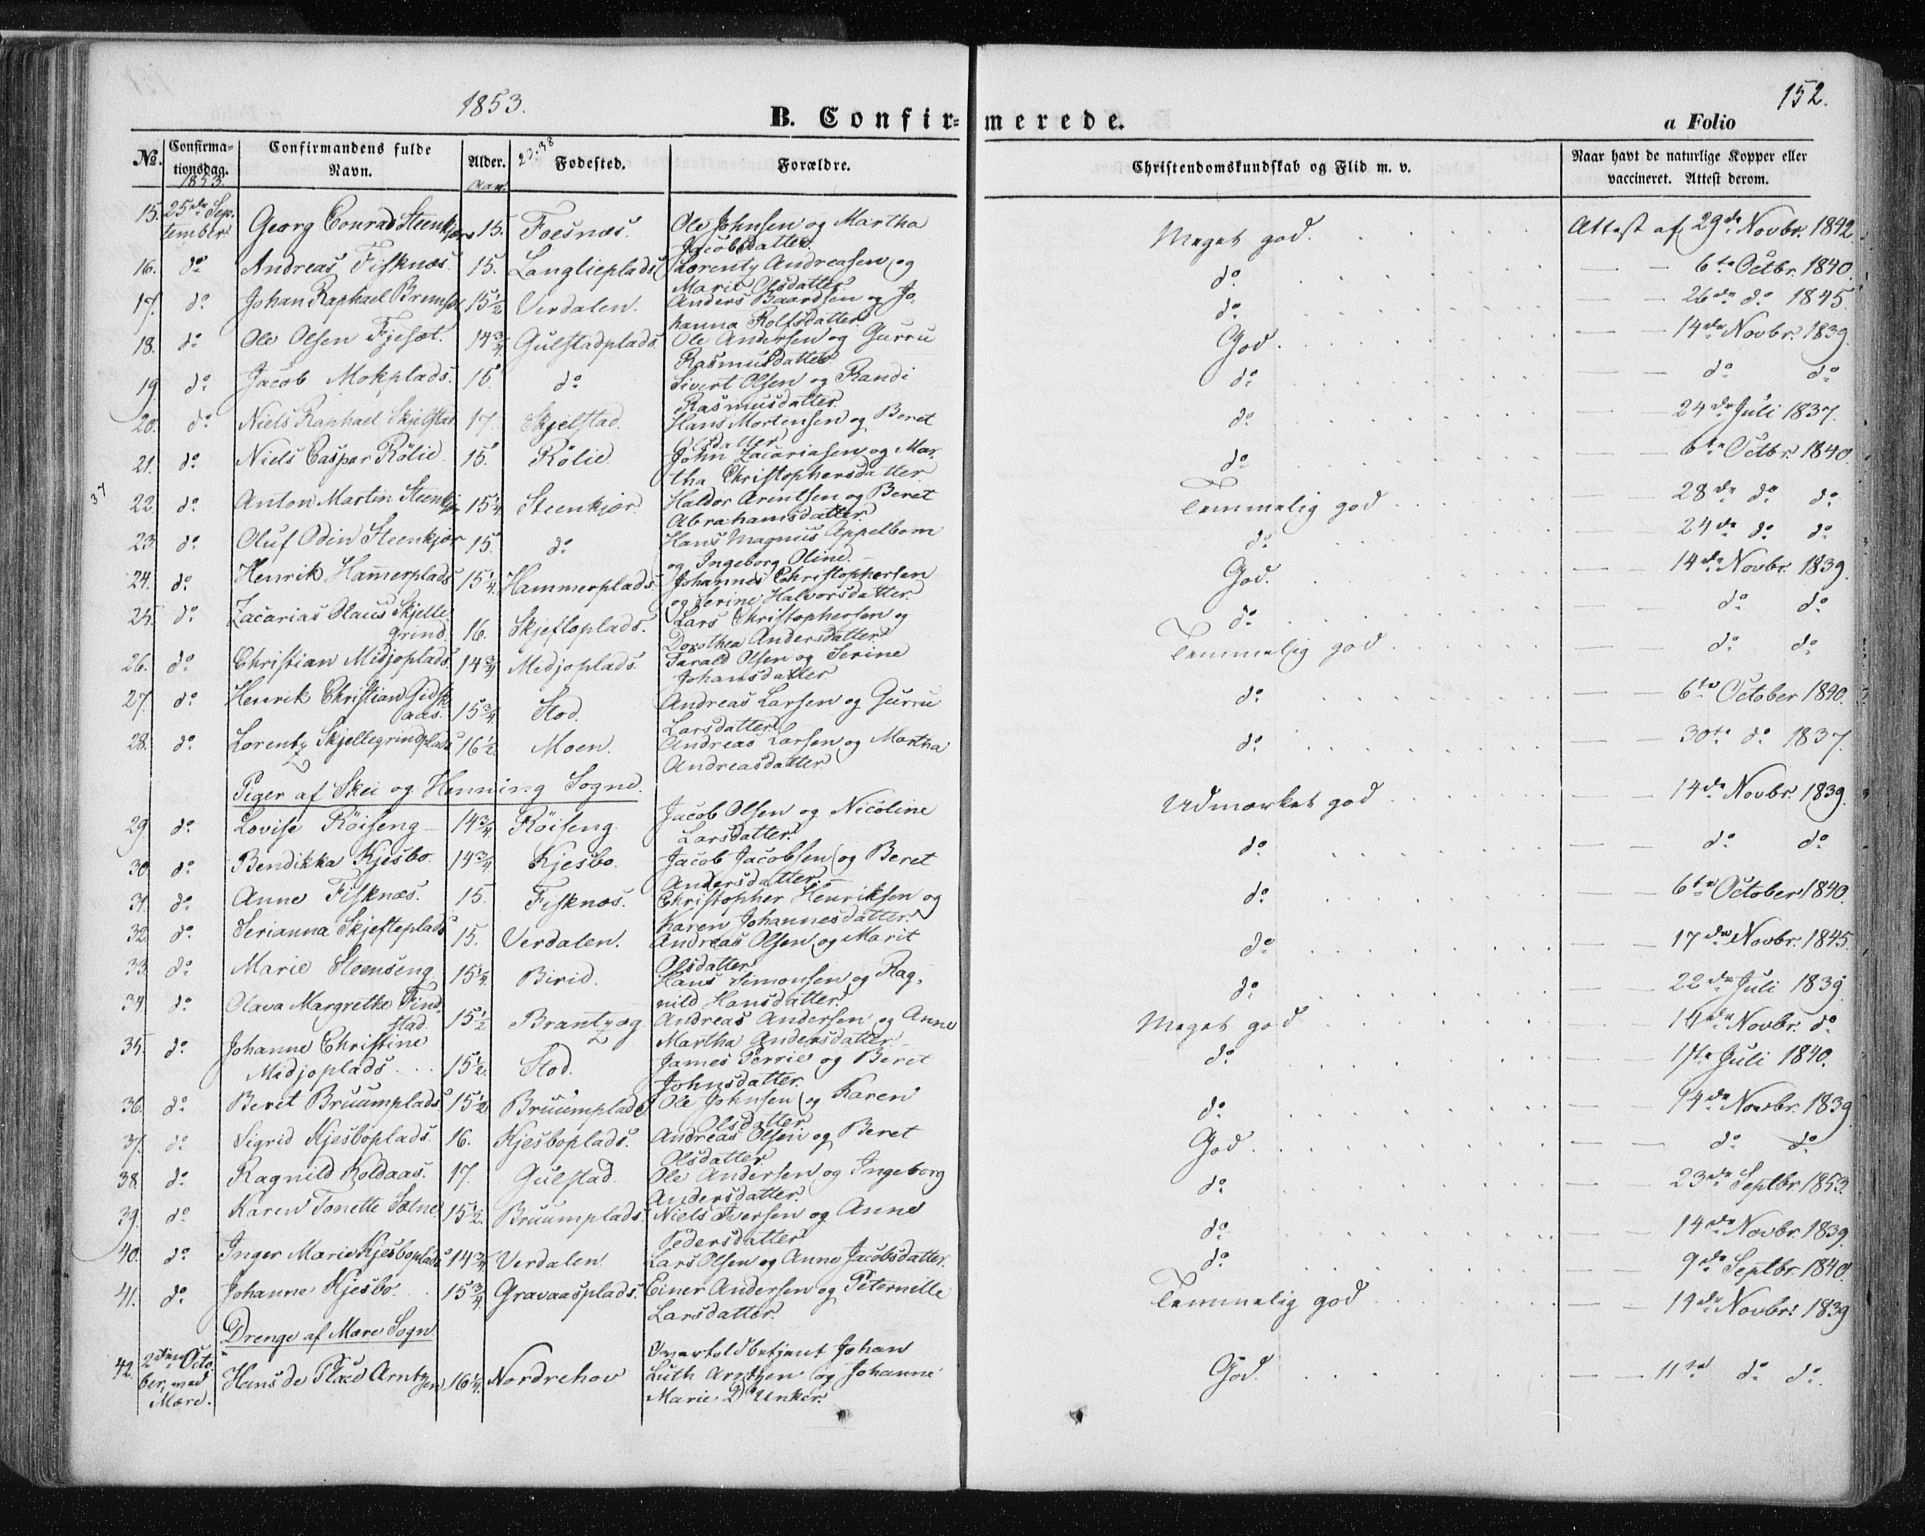 1853.
152.
B. Confirmerede.
a Folio
No. Confirmationsdag. Confirmandens fulde Navn. Alder. Fodested. Forældre. Christendomskundskab og Flid m. v. Naar havt de naturlige Kopper eller vaccineret. Attest derom.
1853. Aar. 23.38
15. 25de September Georg Conrad Steenkjær 15. Foesnæs. Ole Johnsen og Martha Jacobsdatter. Meget god. Attest af 29de Novbr. 1842.
16. do Andreas Fisknæs. 15. Langlieplads. Lorentz Andreasen og Marit Olsdatter. do — — 6te Octbr. 1840.
17. do Johan Raphael 15 1/2 Verdalen. Anders Baardsen og Johanna Rolfsdatter do — — 26de do 1845
18. do Ole Olsen 14 3/4 Gulstadplads. Ole Andersen og Gurru Rasmusdatter God. — — 14de Novbr. 1839.
19. do Jacob Mokplads. 15. do Sivert Olsen og Randi Rasmusdatter. do — — do do
20. do Niels Raphael Skjelstad 17. Skjelstad. Hans Mortensen og Beret Olsdatter do — — 24de Juli 1837.
21. do Niels Caspar Rølie 15. Rølie John Zacariasen og Martha Christophersdatter do — — 6te Octbr. 1840.
37
22. do Anton Martin Steenkjær 15 1/4 Steenkjær. Haldor Arentsen og Beret Abrahamsdatter Temmelig god — — 28de do do
23. do Oluf Odin Steenkjær 15. do Hans Magnus Appelbom og Ingeborg Oline. do — — 24de do do
24. do Henrik Hammerplads 15 1/4 Hammerplads. Johannes Christophersen og Serine Halvorsdatter. God. — — 14de Novbr. 1839.
25. do Zacarias Olaus Skjellegrind. 16. Skjefloplads. Lars Christophersen og Dorothea Andersdatter do — — do do
26. do Christian Midjoplads. 14 3/4 Midjoplads. Tarald Olsen og Serine Johansdatter Temmelig god — — do do
27. do Henrik Christian Gidskaas. 15 3/4 Stod. Andreas Larsen og Gurru Larsdatter. do — — 6te October 1840.
28. do Lorentz Skjellegrindplads 16 1/2 Moen. Andreas Larsen og Martha Andreasdatter do — — 30te do 1837.
Piger af Skei og Henning Sogne.
29 do Lovise Röiseng 14 3/4 Röiseng Jacob Olsen og Nicoline Larsdatter. Udmærket god — — 14de Novbr. 1839.
30. do Bendikka Kjesbo. 14 3/4 Kjesbo. Jacob Jacobsen og Beret Andersdatter. do — — do do
31. do Anne Fisknæs. 15. Fisknæs. Christopher Henriksen og Karen Johannesdatter. do — — 6te October 1840.
32. do Serianna Skjefteplads 15. Verdalen. Andreas Olsen og Marit Olsdatter do — — 17de Novbr. 1845.
33. do Marie Steenseng 15 1/4 Birid. Hans Simonsen og Ragnild Hansdatter. do — — 22de Juli 1839.
34. do Olava Margrethe Findstad 15 1/2 Brantzæg Andreas Andersen og Anne Martha Andersdatter. Meget god — — 14de Novbr. do
35. do Johanne Christine Midjoplads 15 1/2. Stod. James Perrie og Beret Johnsdatter. do — — 1ste Juli 1840.
36. do Berit Bruumplads 15 1/2 Bruumplads Ole Johnsen og Karen Olsdatter do — — 14de Novbr. 1839.
37. do Sigrid Kjesboplads. 16. Kjesboplads. Andreas Olsen og Beret Olsdatter God. — — do do
38. do Ragnild Koldaas. 17. Gulstad Ole Andersen og Ingeborg Andersdatter. do — — 23de Septbr. 1853.
39. do Karen Tonette Sætne 15 1/2. Bruumplads. Niels Iversen og Anne Pedersdatter do — — 14de Novbr. 1839.
40. do Inger Marie Kjesboplads 14 3/4 Verdalen Lars Olsen og Anne Jacobsdatter. do — — 9de Septbr. 1840.
41. do Johanne Kjesbo. 15 3/4 Gravaasplads. Einer Andersen og Peternille Larsdatter. Temmelig god — — 14de Novbr. 1839
Drenge af Mære Sogn.
42. 2den October, ved Mære. Hans de Flaed Arntzen 16 1/4 Nordrehov Overtoldbetjent Johan Luth Arntzen og Johanne Marie D Unker. God. — — 11te do do.